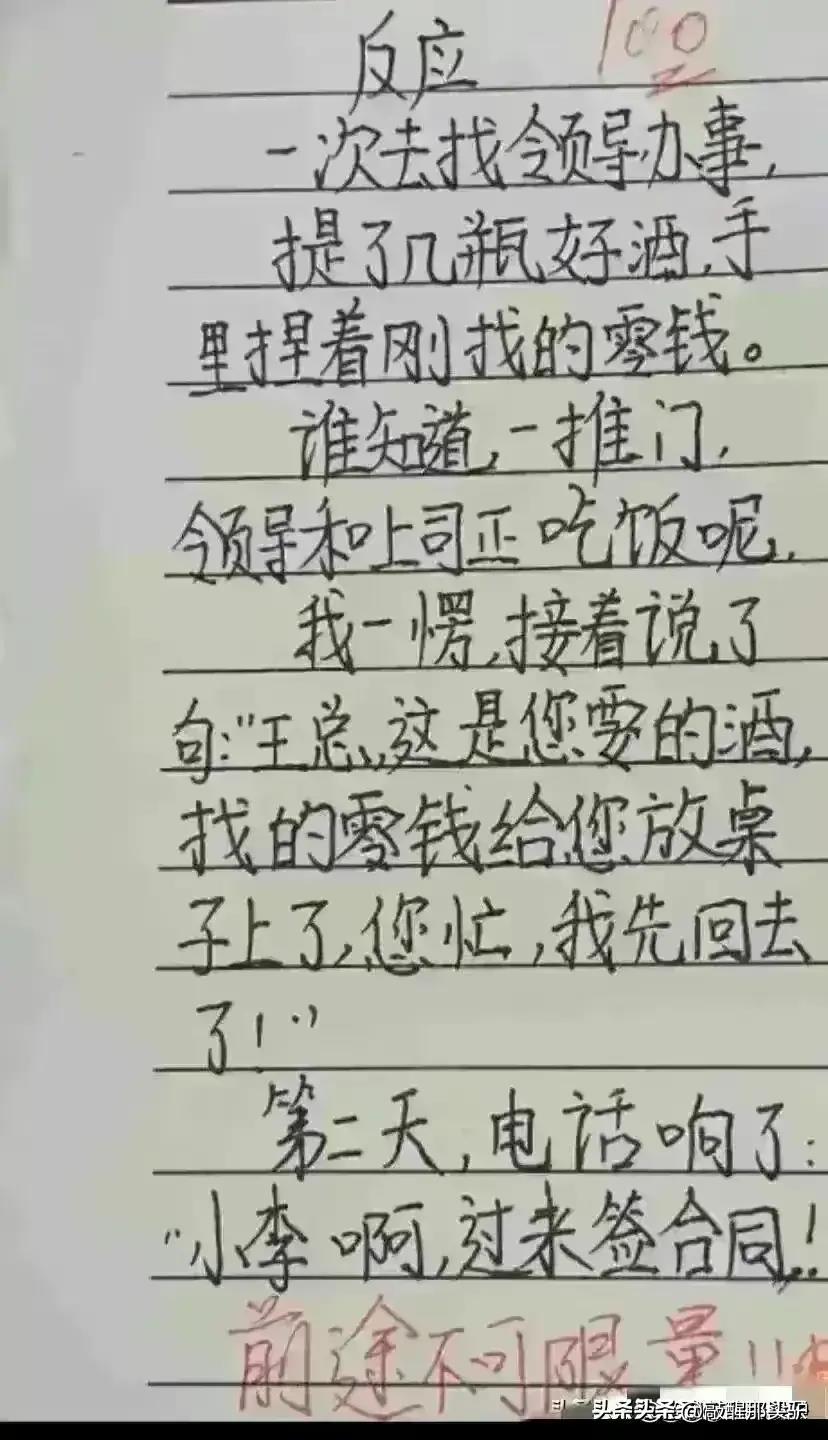 反应
100
一次去找领导办事,
提了几瓶好酒,手
里捏着刚找的零钱。
谁知道,一推门,
领导和上司正吃饭呢,
我一愣,接着说了
句:"王总,这是您要的酒,
找的零钱给您放桌
子上了,您忙,我先回去
了!"
第二天,电话响了:
"小李啊,过来签合同!
前途不可限量!!
头条 @敲醒那